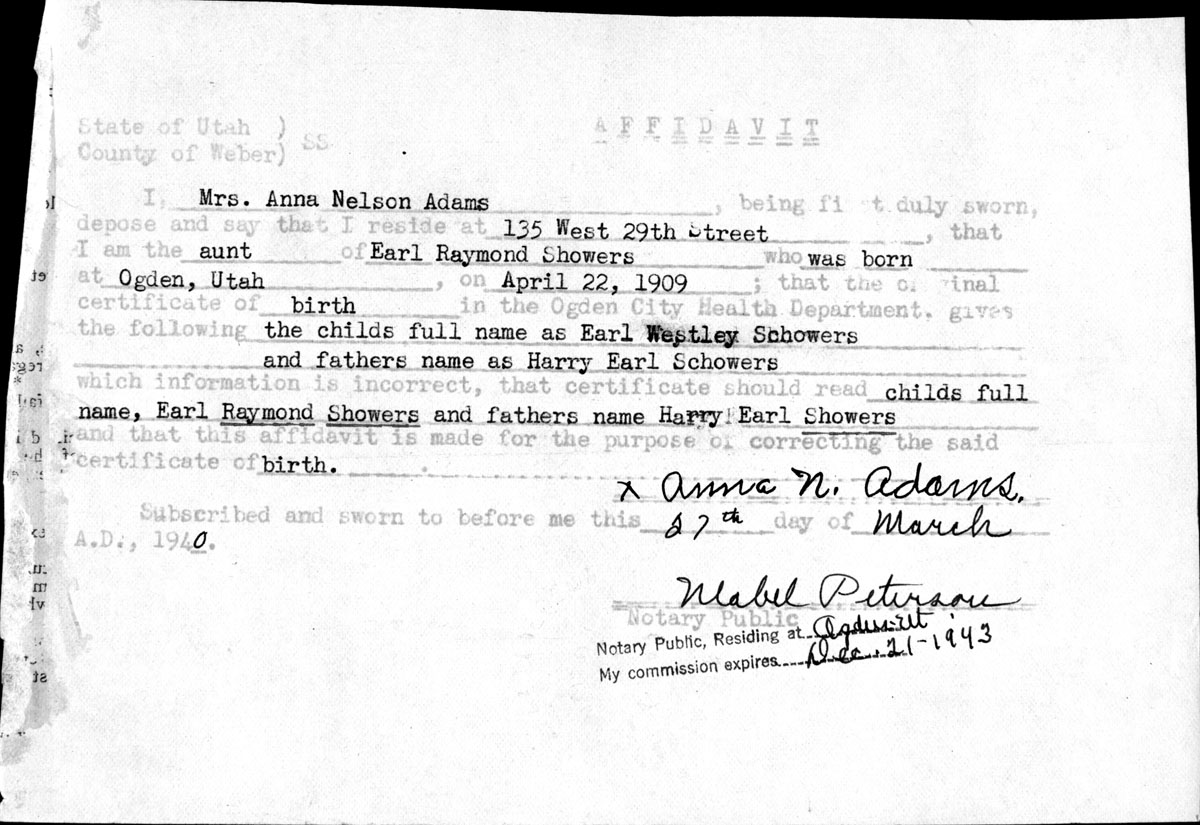 State of Utah )
County of Weber) SS
A F F I D A V I T
I, Mrs. Anna Nelson Adams , being fi t duly sworn,
depose and say that I reside at 135 West 29th Street , that
I am the aunt of Earl Raymond Showers who was born
at Ogden, Utah , on April 22, 1909 ; that the o inal
certificate of birth in the Ogden City Health Department. gives
the following the childs full name as Earl Westley Schowers
and fathers name as Harry Earl Schowers
which information is incorrect, that certificate should read childs full
name, Earl Raymond Showers and fathers name Harry Earl Showers
and that this affidavit is made for the purpose of correcting the said
certificate of birth.
x Anna N. Adams.
Subscribed and sworn to before me this 27th day of March
A.D., 1940.
Mabel Peterson
Notary Public
Notary Public, Residing at Ogden-Ut
My commission expires Dec. 21-1943